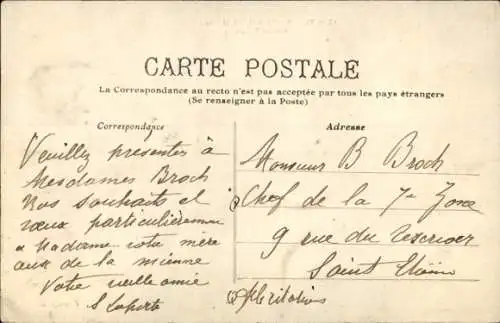 CARTE POSTALE
La Correspondance au recto n'est pas acceptée par tous les pays étrangers
(Se renseigner à la Poste)
Correspondance
Adresse
Veuillez presenter à
Mesdames Broch
Nos souhaits et
vœux particulièrement
a Madame votre mère
aux de la mienne
Votre vieille amie
Monsieur B Broch
Chef de la 7e Zone
9 rue du
Saint Etienne